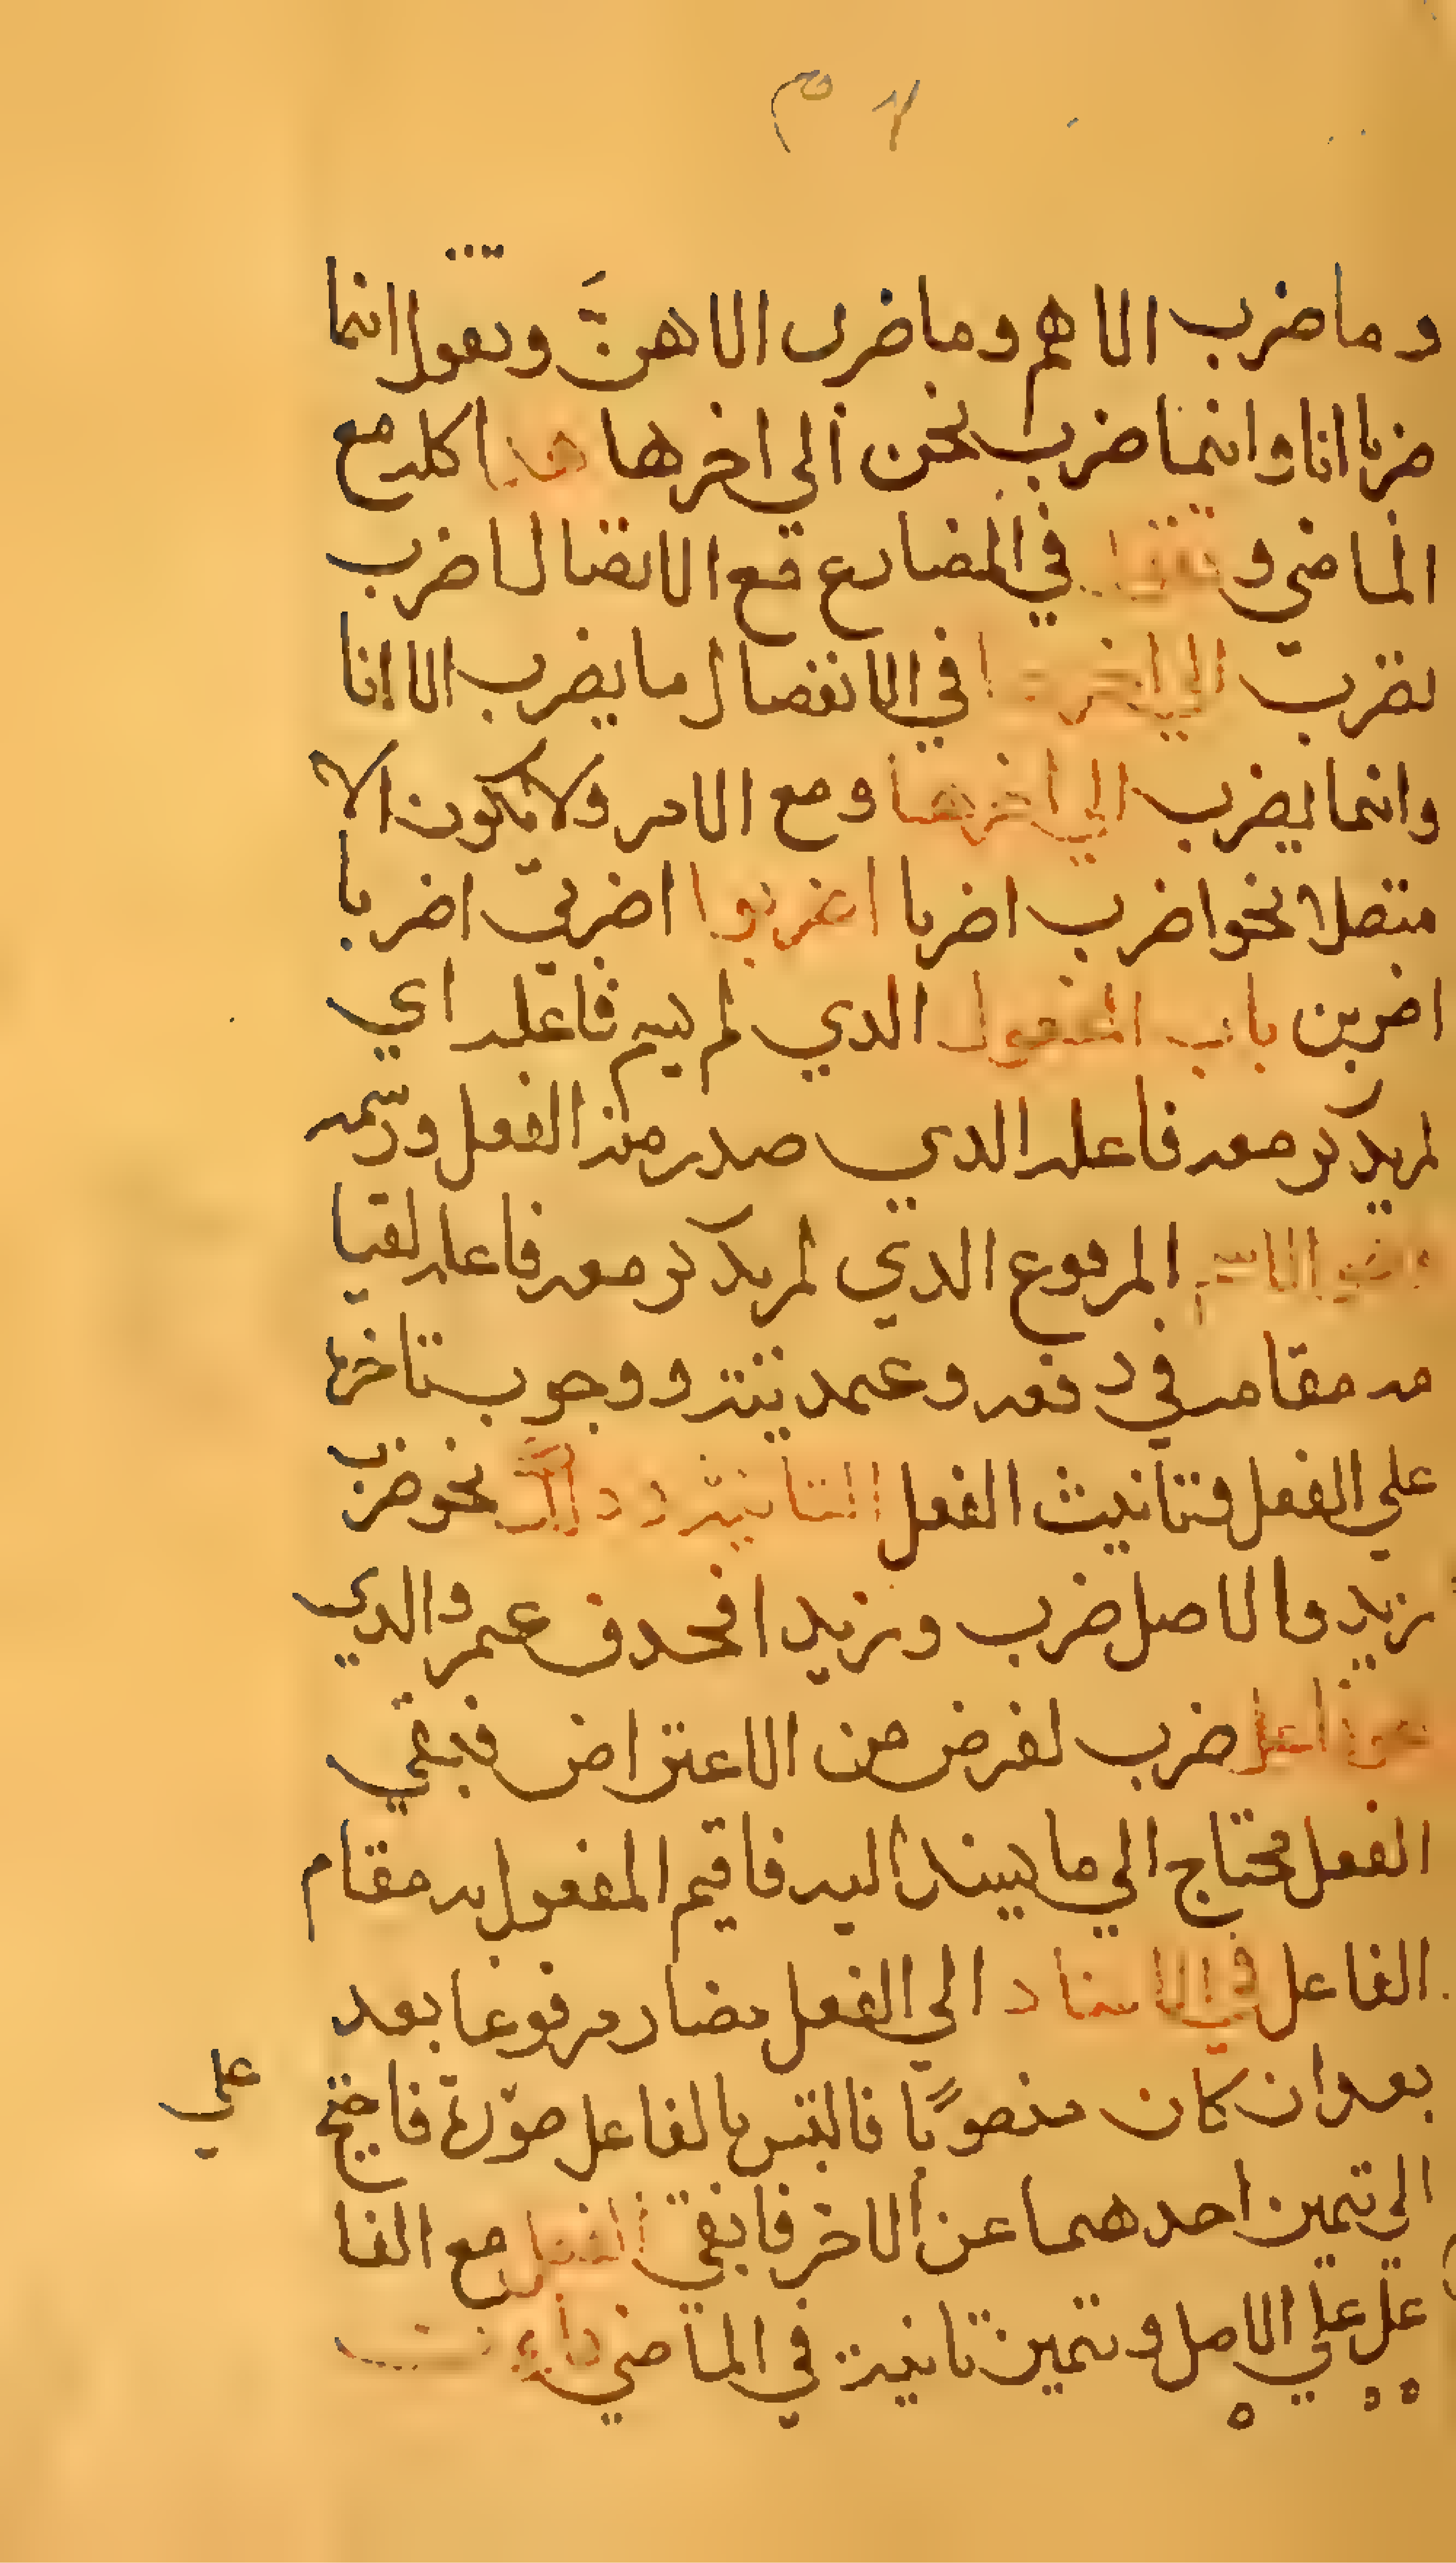 وما ضرب الا هم وما ضرب الا هنَّ وتقول انما
ضربا انا وانما ضرب نحن الى اخرها هذا كله مع
الماضي و في المضارع فمع الاتصال اضرب
نضرب الي اخرها في الانفصال ما يضرب الا انا
وانما يضرب الي اخرها ومع الامر ولا يكون الا
متصلا نحو اضرب اضربا اضربوا اضربي اضربا
اضربن باب المفعول الدي لم يسم فاعله اي
لم يدكر معه فاعله الدي صدر منه الفعل ورسمه
وهو الاسم المرفوع الدي لم يدكر معه فاعله لقيا
مه مقامه في رفعه وعمديته ووجوب تاخره
علي الفعل وتانيث الفعل نحو ضرب
زيد والاصل ضرب وزيدا فحدف عمرو الدي
هو فاعل ضرب لغرض من الاعتراض فبقي
الفعل محتاج الي ما يسند اليه فاقيم المفعول به مقام
الفاعل في الاسناد الي الفعل فصار مرفوعا بعد
بعد ان كان منصوبًا فالتبس بالفاعل صورة فاحتج
علي
الي تميين احدهما عن الاخر فابقي الفعل مع الفا
عل علي الاصل وتميين تانيته في الماضي